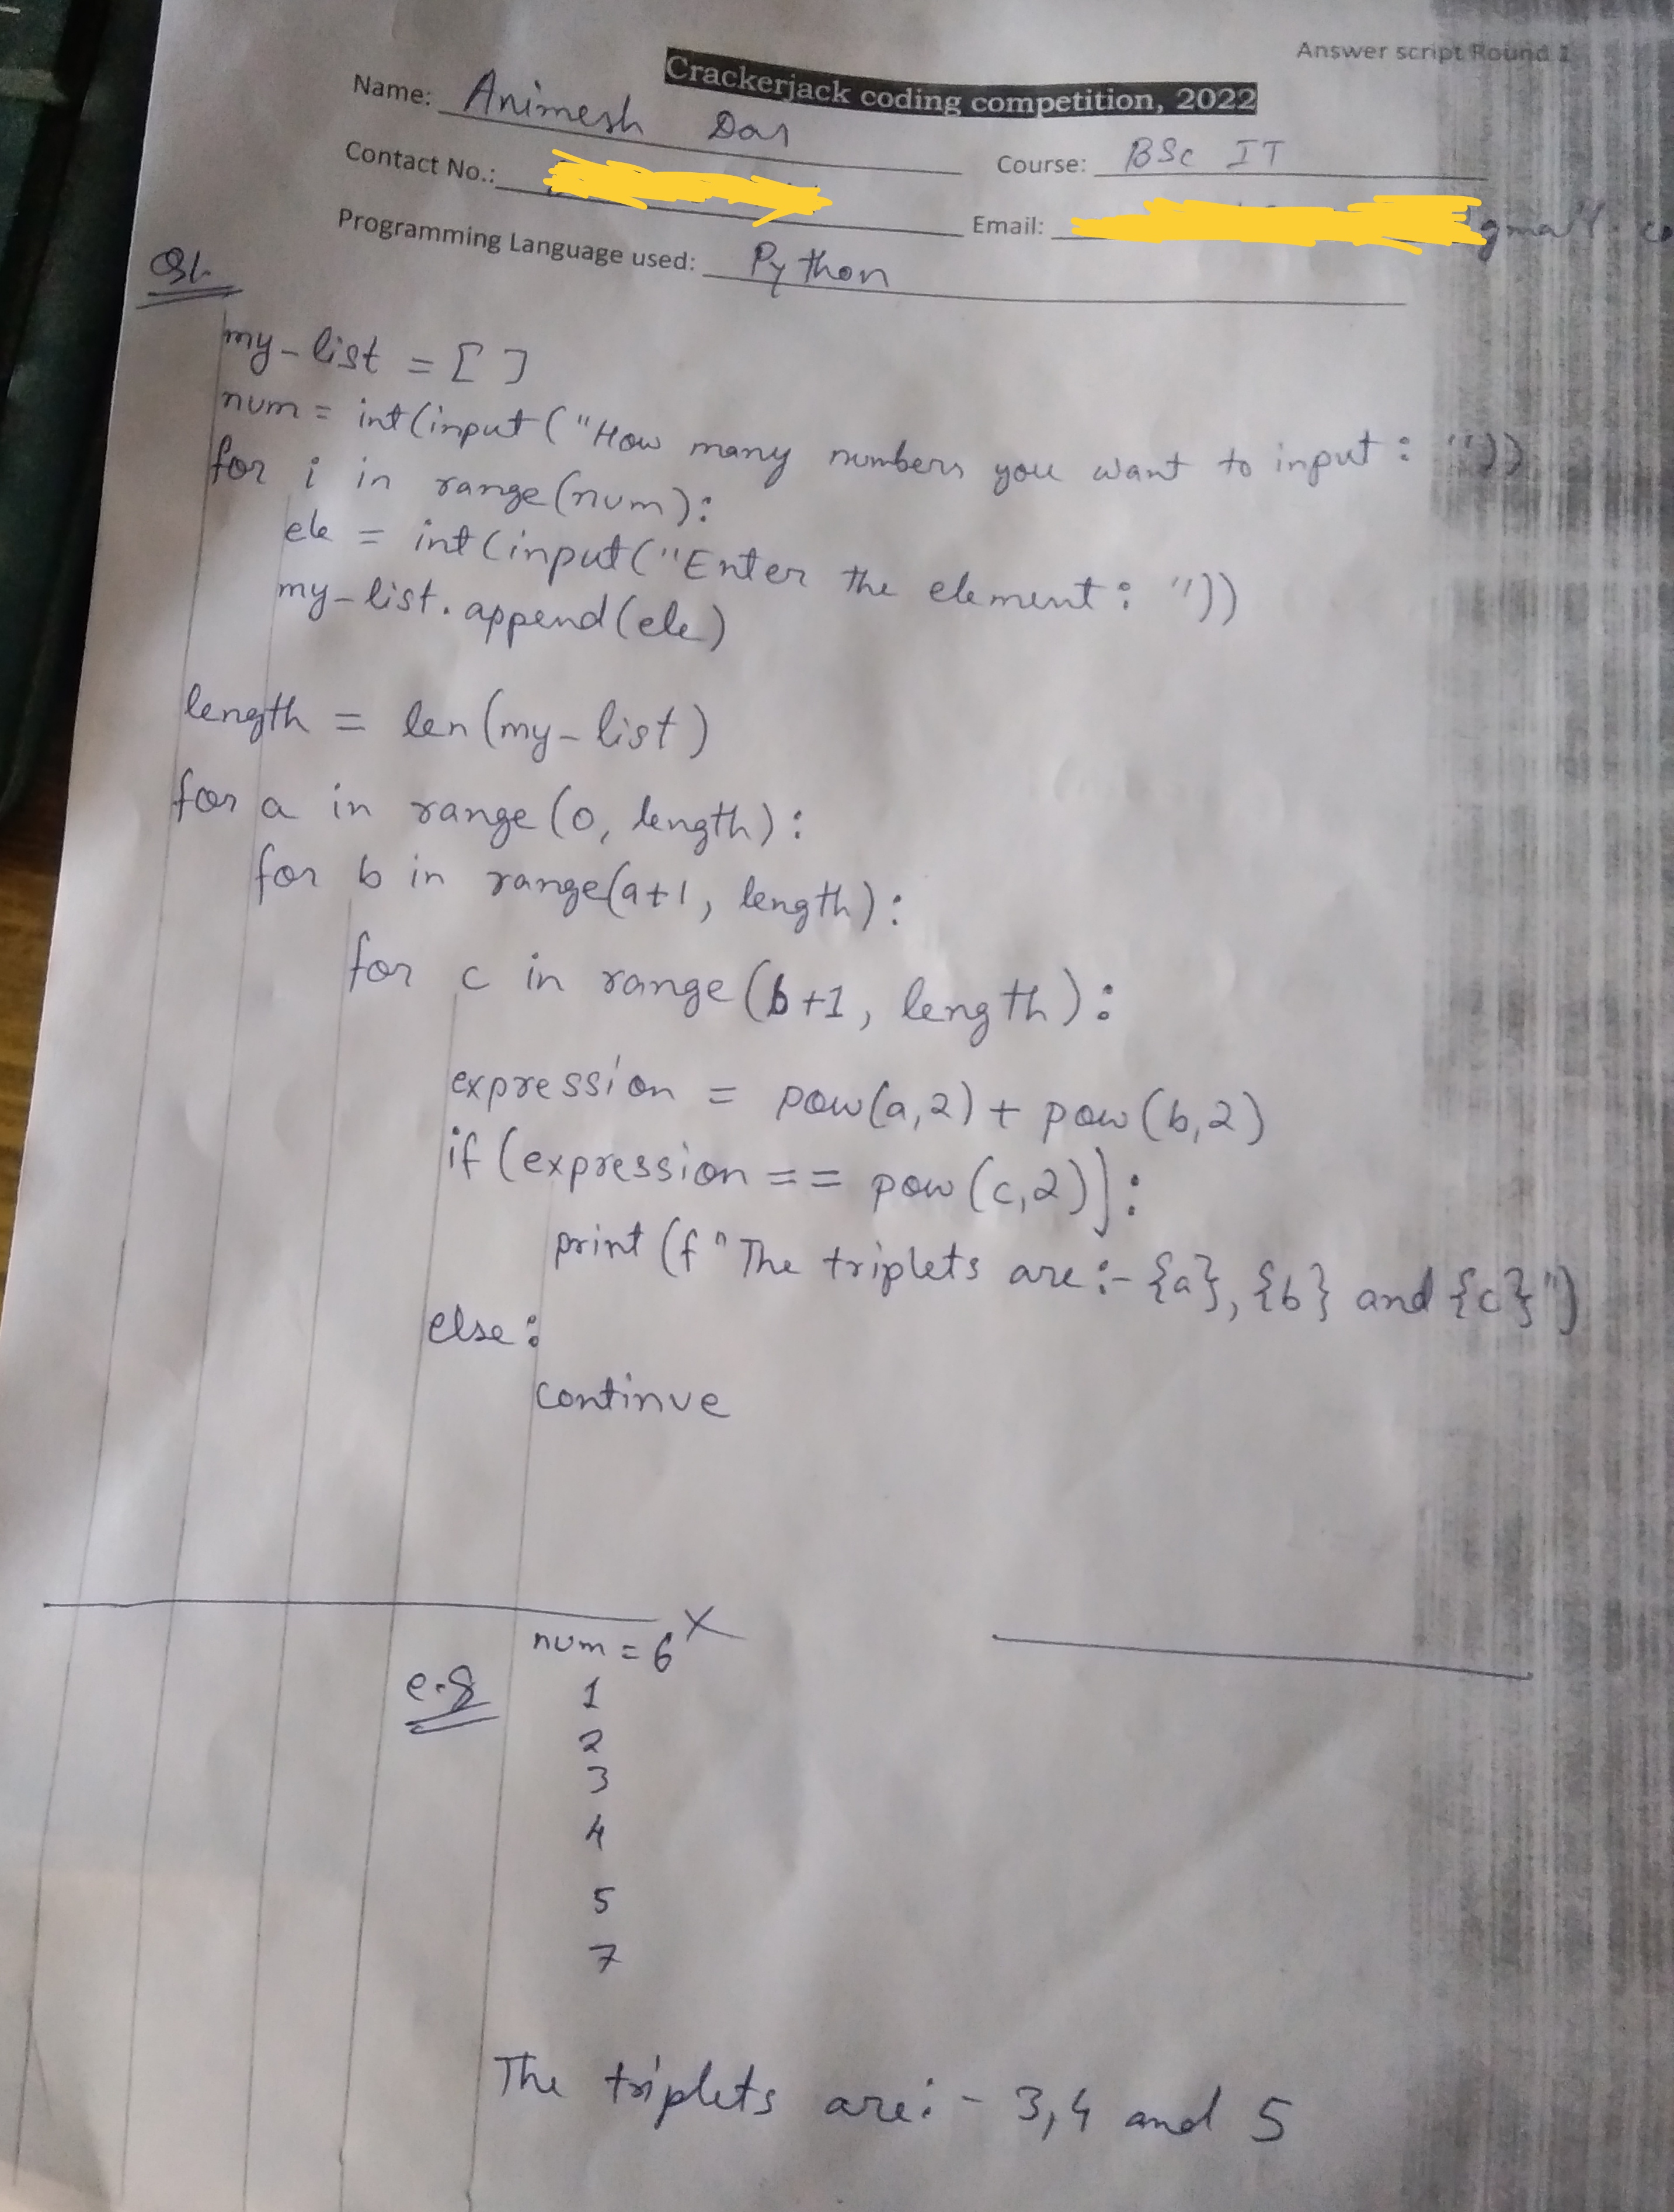 Answer script Round 1
Crackerjack coding competition, 2022
Name: Animesh Das
Course: BSc IT
Contact No.:
Email: gmail.co
Programming Language used: Python
Q1.
my_list = [ ]
num = int(input("How many numbers you want to input: "))
for i in range(num):
ele = int(input("Enter the element: "))
my_list.append(ele)
length = len(my_list)
for a in range(0, length):
for b in range(a+1, length):
for c in range(b+1, length):
expression = pow(a,2) + pow(b,2)
if (expression == pow(c,2)):
print(f"The triplets are:- {a}, {b} and {c}")
else:
continue
X
num = 6
e.g
1
2
3
4
5
7
The triplets are:- 3,4 and 5